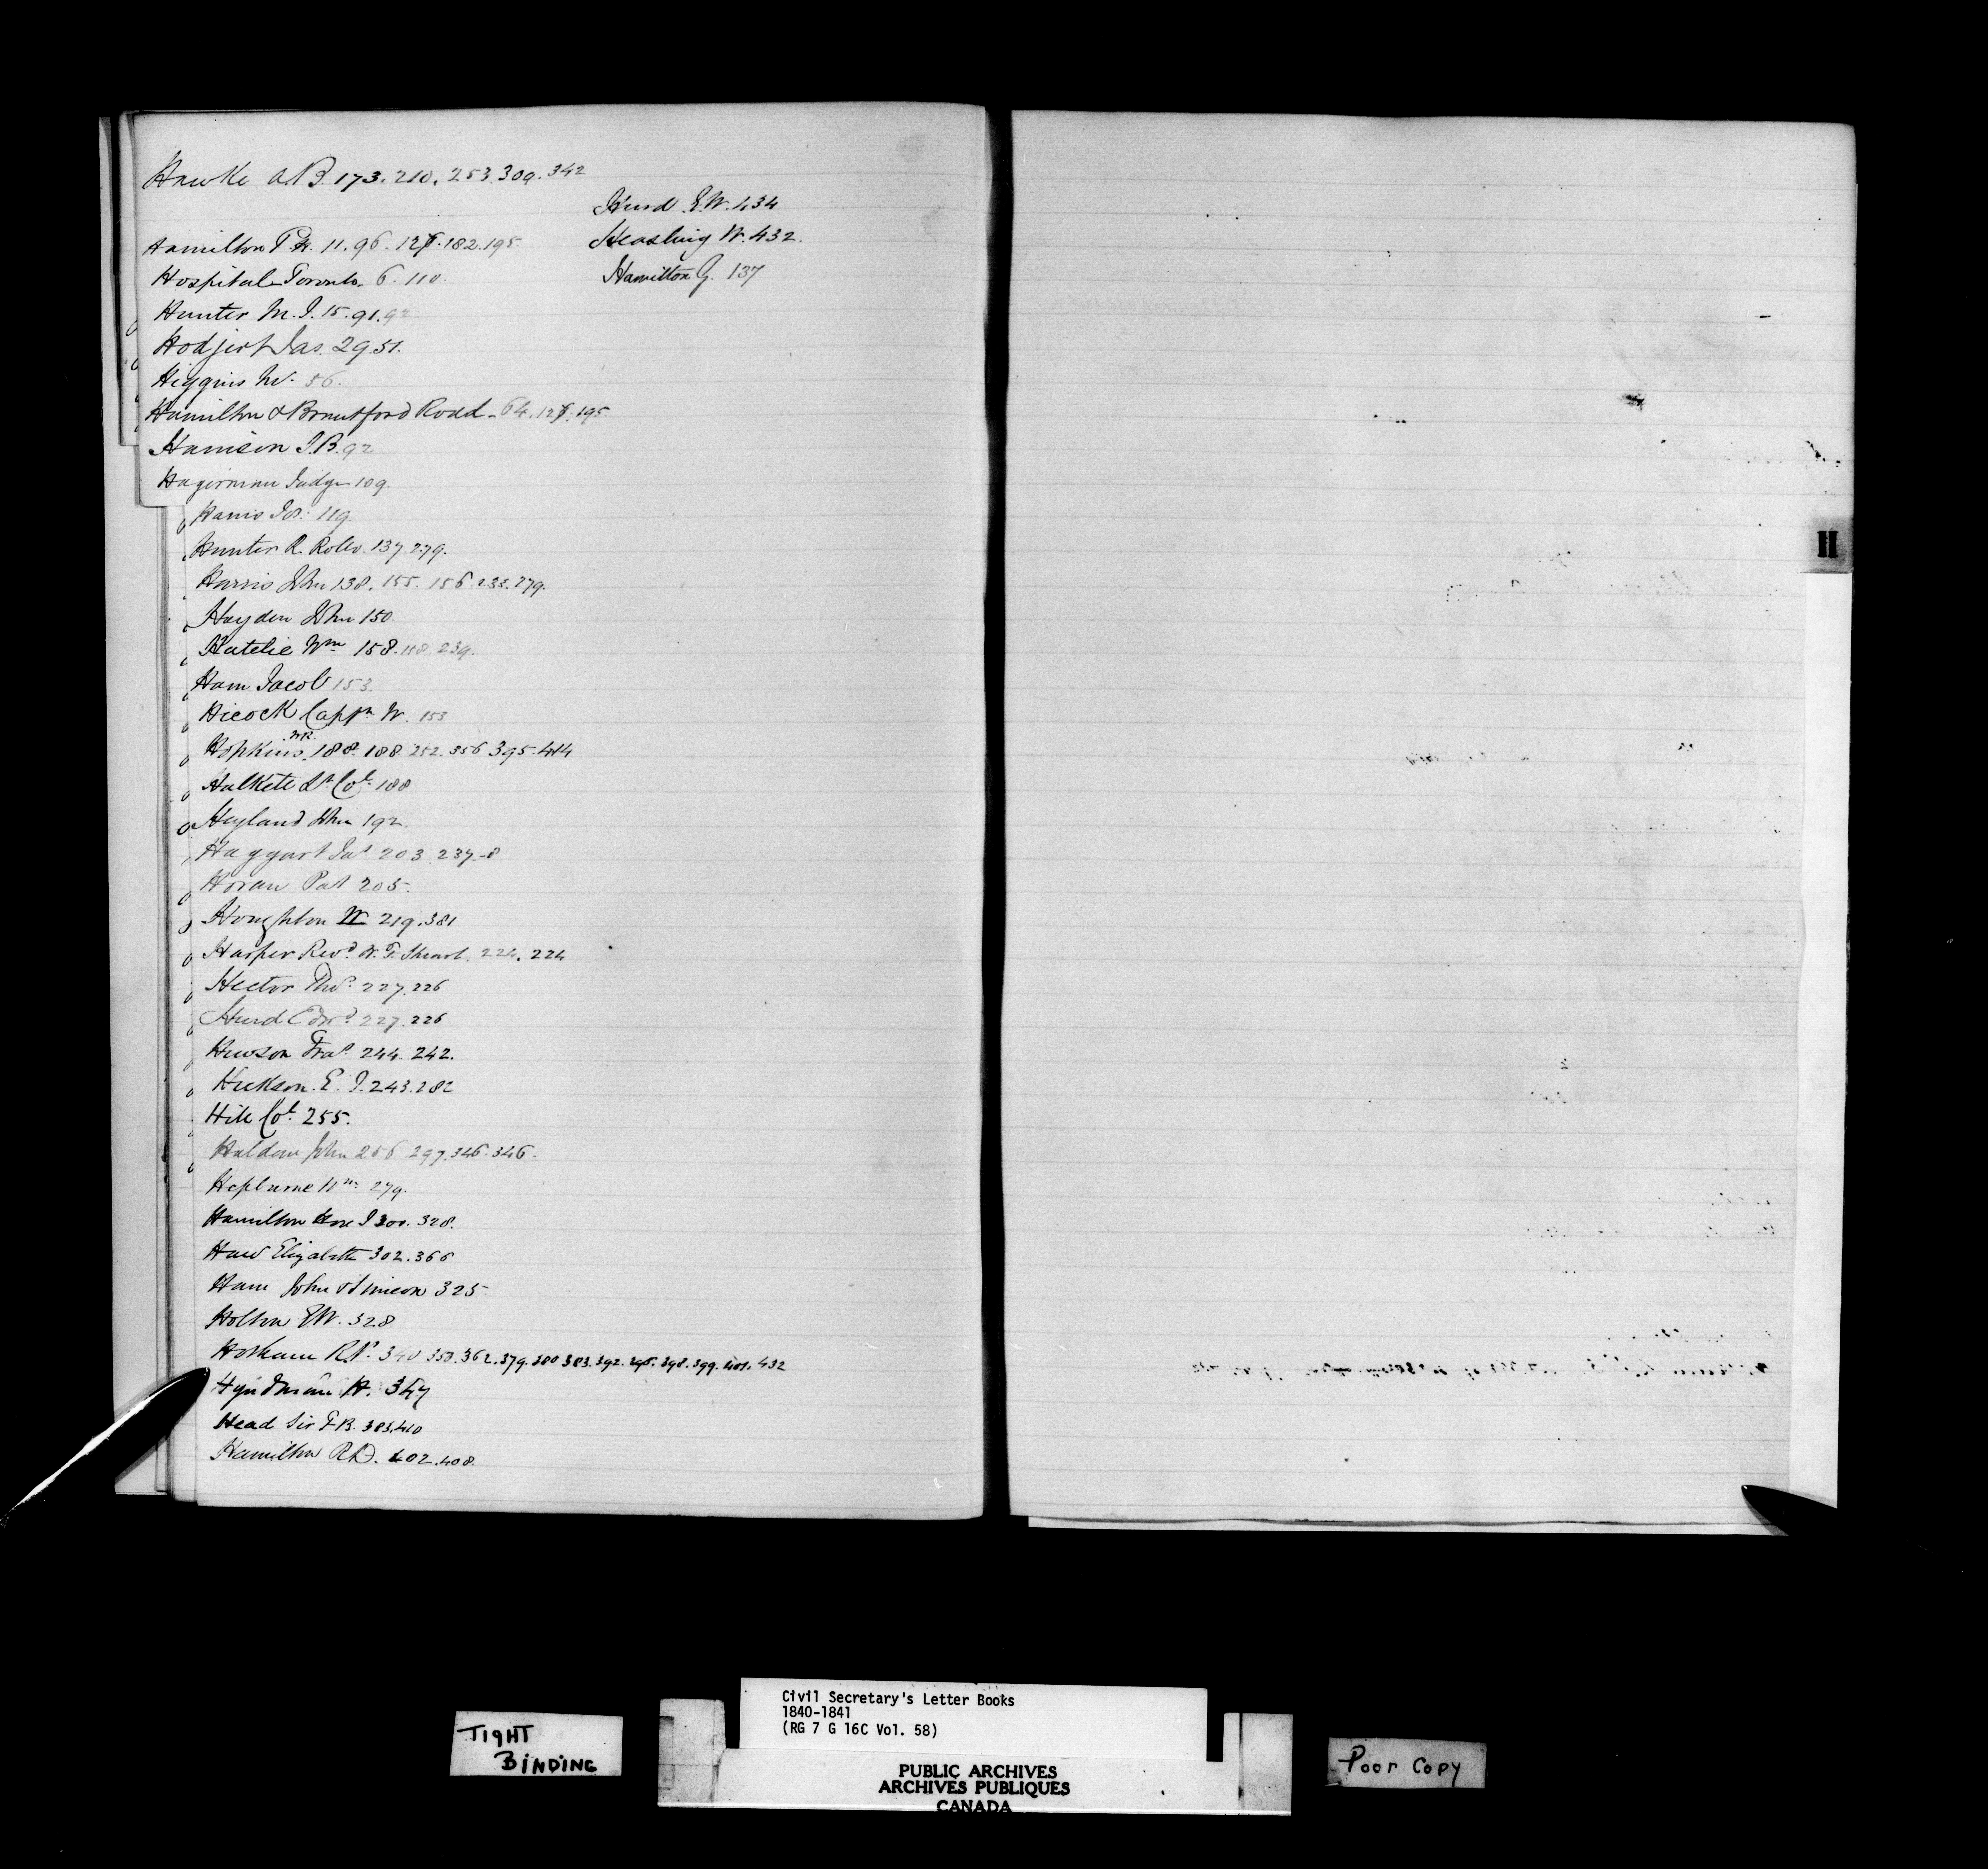 Hawke A.B. 173. 210. 253. 309. 342
Hamilton P. H. 11. 96. 127. 182. 195
Hospital Toronto. 6. 110.
Hunter M. J. 15. 91. 92
Hodjert Jas. 29. 51.
Higgins W. 56.
Hamilton & Brantford Road - 64. 127. 195
Harrison J.B. 92
Hagerman Judge 109.
Harris Jos. 119
Hunter R. Rollo. 137. 279.
Harris John 138. 155. 156. 238. 279.
Hayden John 150.
Hatelie Wm 158. 158. 239.
Ham Jacob 153
Hicock Captn W. 153
Hopkins 188. 188. 252. 356 395. 414
Halkett Lt Col. 188
Hyland John 192
Haggart Jas 203. 237-8
Horan Pat 205.
Houghton W 219. 381
Harper Revd. W. F. Stewart. 224. 224
Hector Thos. 227. 226
Hurd Edwd. 227. 226
Hewson Fras. 244. 242.
Hickson. E. J. 243. 282
Hill Col. 255.
Haldane John 256 297. 346. 346.
Hepburne Wm. 279.
Hamilton Hon J 300. 328.
Haw Elizabeth 302. 366
Ham John & Simeon 325
Holton EW. 328
Hotham R. 340 353. 362. 379. 380 383. 392. 395. 398. 399. 401. 432
Hyndman H. 347
Head Sir F B. 383. 410
Hamilton R D. 402. 408.
Hurd E.W. 434
Keasling W. 432.
Hamilton G. 137
H
TIGHT
BINDING
Civil Secretary's Letter Books
1840-1841
(RG 7 G 16C Vol. 58)
PUBLIC ARCHIVES
ARCHIVES PUBLIQUES
CANADA
Poor Copy